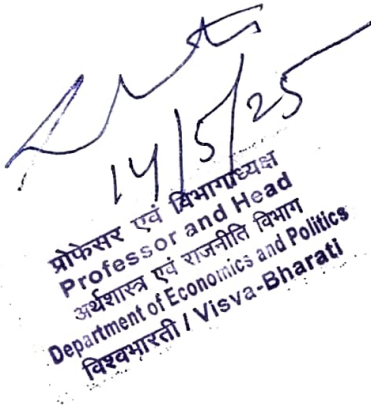 14/5/25
प्रोफेसर एवं विभागाध्यक्ष
Professor and Head
अर्थशास्त्र एवं राजनीति विभाग
Department of Economics and Politics
विश्वभारती / Visva-Bharati